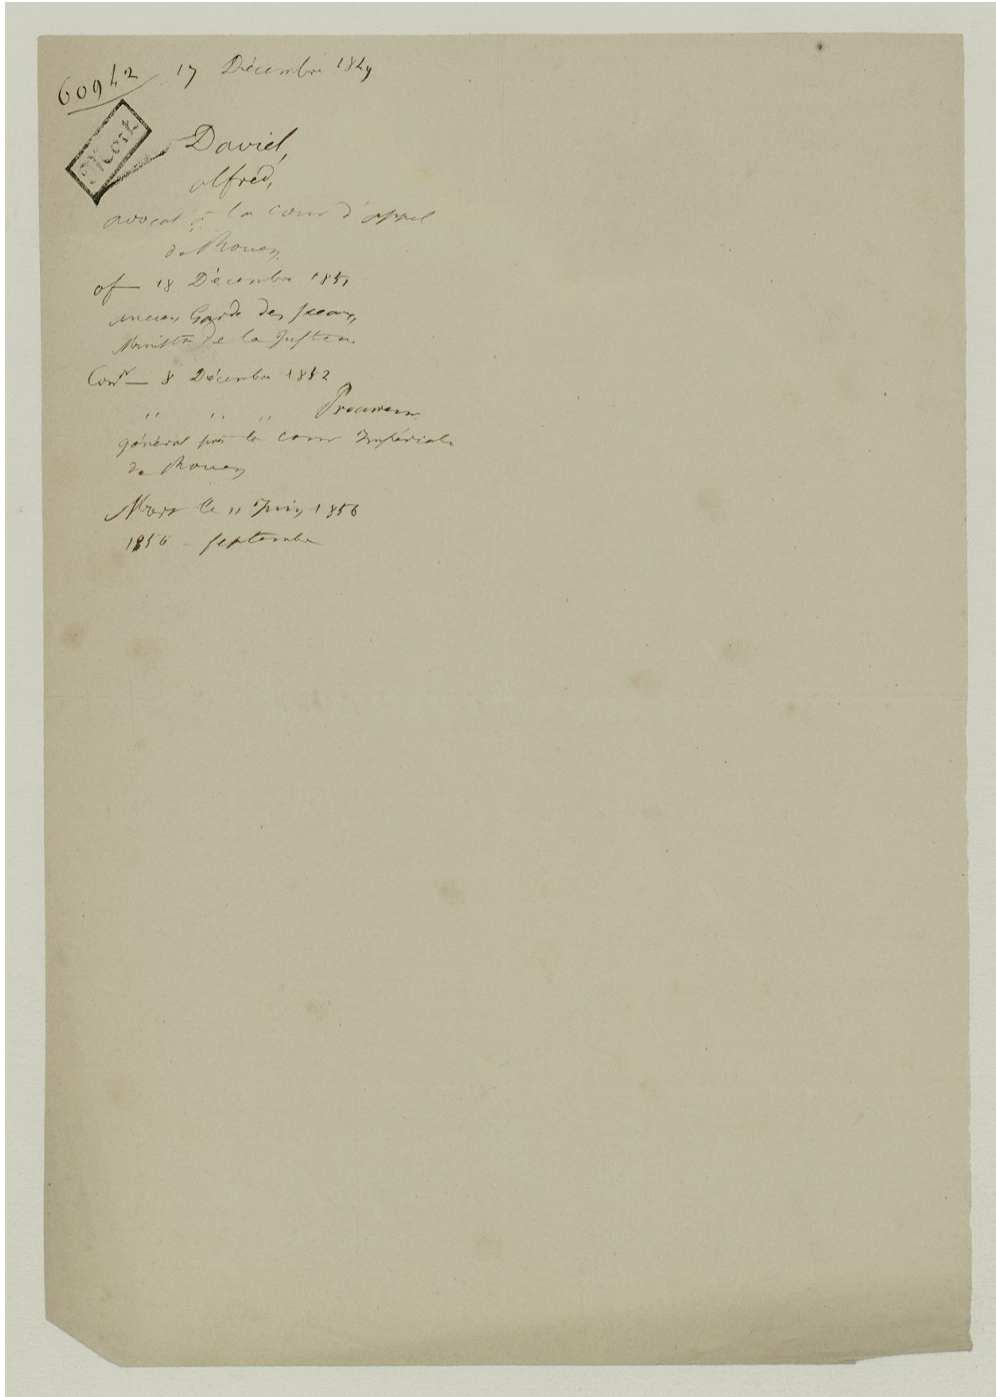 60942 17 Décembre 1849
Mort
Daviel,
alfred,
avocat à la cour d'appel
de Rouen,
of— 18 Décembre 1851
ancien Garde des sceaux,
Ministre de la Justice.
Comr— 8 Décembre 1852
" " " Procureur
général près la cour Impériale
de Rouen
Mort le 11 Juin 1856
1856 - septembre